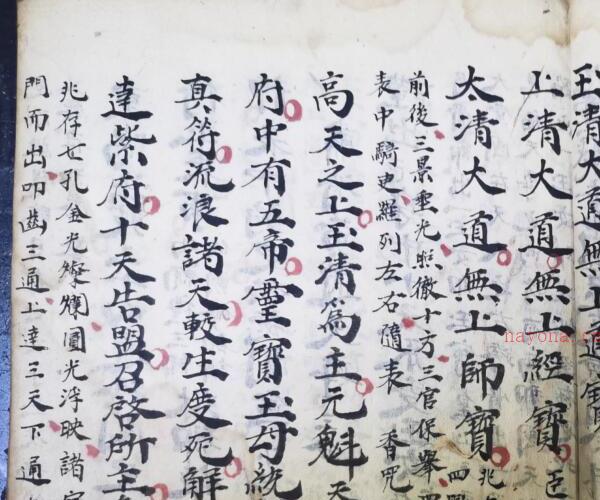 玉清大道無上
上清大道無上經寶 臣
太清大道無上師寶 兆
四
前後三景垂光照徹十方三官保舉
表中騎吏羅列左右隨表 香咒
高天之上玉清爲主元魁 天
府中有五帝靈寶玉母統
真符流浪諸天較生度死解
達紫府十天告盟召啓所主
兆存七孔金光燦爛圓光浮映諸
門而出叩齒三通上達三天下通